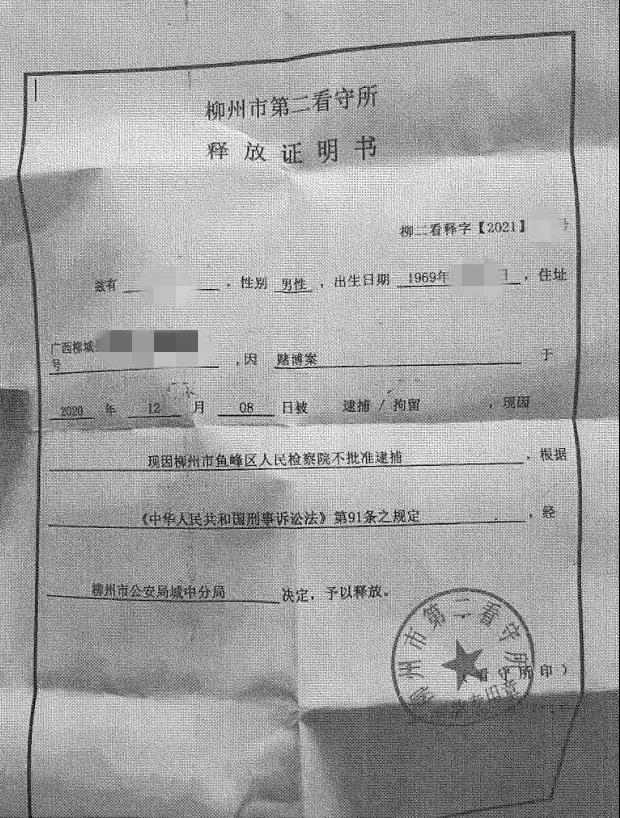 柳州市第二看守所
释放证明书
柳二看释字【2021】 号
兹有 ，性别 男性 ，出生日期 1969年 日 ，住址
广西柳城
号 ，因 赌博案 于
2020 年 12 月 08 日被 逮捕 / 拘留 ，现因
现因柳州市鱼峰区人民检察院不批准逮捕 ，根据
《中华人民共和国刑事诉讼法》第91条之规定 ，经
柳州市公安局城中分局 决定，予以释放。
柳州市第二看守所
（看守所印）